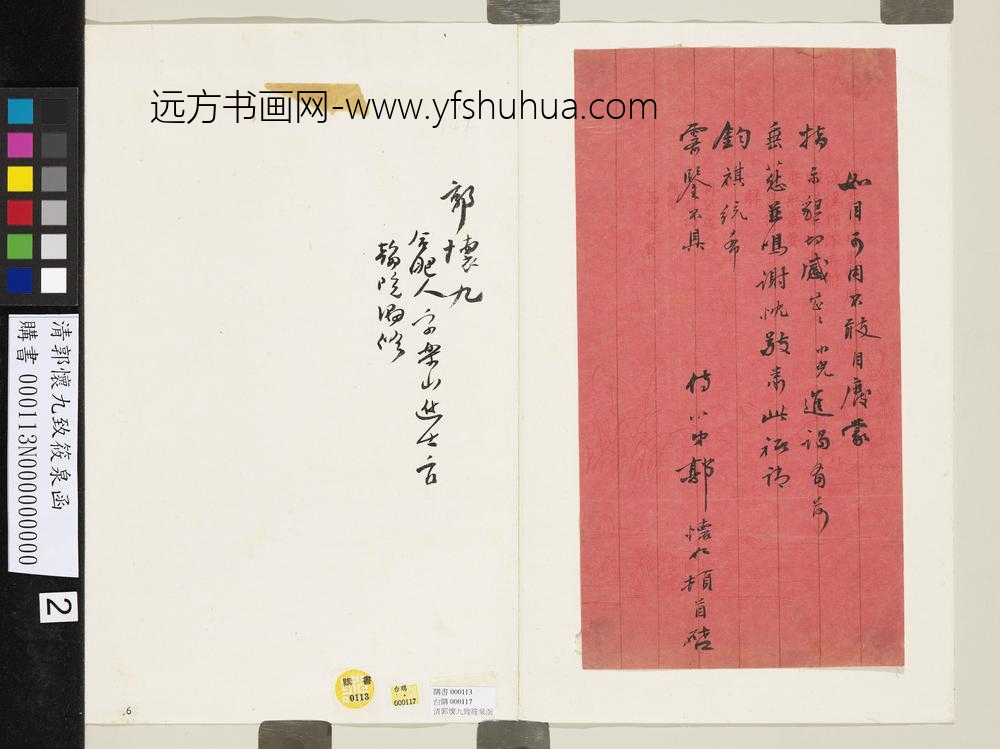 远方书画网-www.yfshuhua.com
如目可用不敢目廢蒙
指示懇切感 小兒進謁有荷
垂慈並鳴謝忱敬肅此祗請
鈞祺統希
雲鑒不具
侍小中郭懷仁頓首啓
郭懷九
合肥人字樂山進士官
翰院編修
清郭懷九致筱泉函
購書 000113N000000000
2
購書
0113
台購
000117
購書 000113
台購 000117
清郭懷九致筱泉函
6